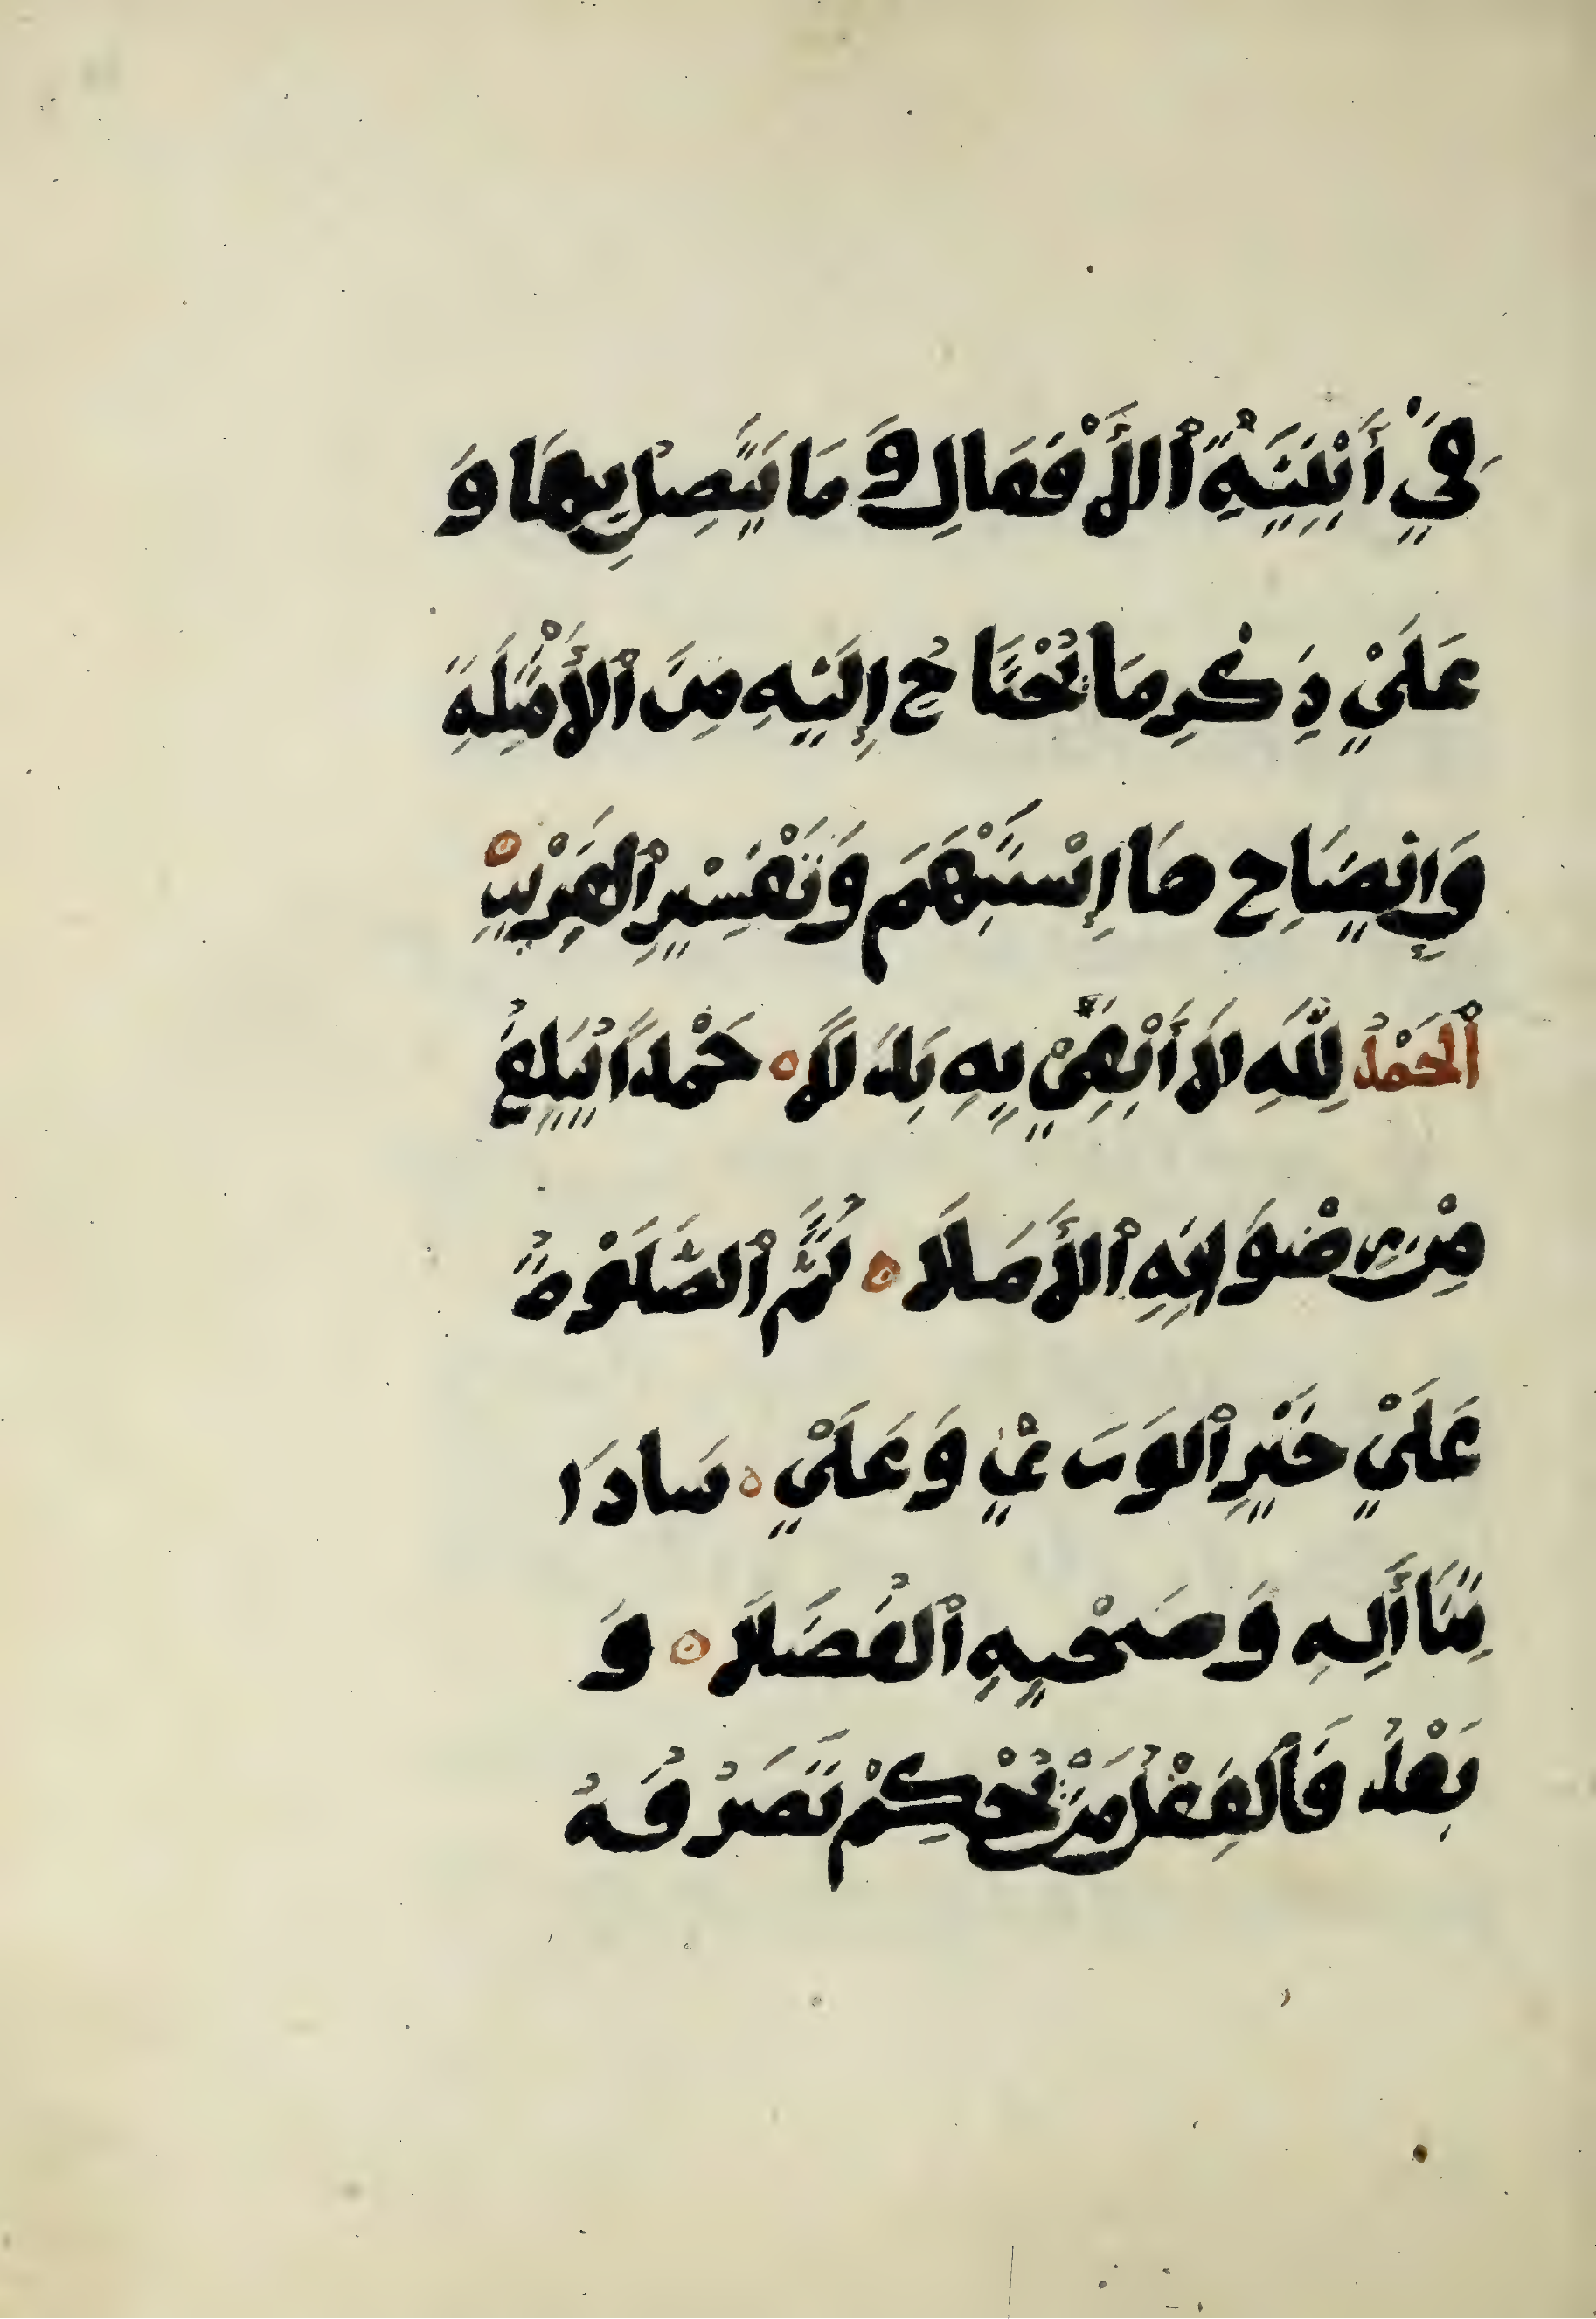 فِيْ أَبْنِيَةِ ٱلْأَفْعَالِ وَمَا يَتَّصِلُ بِهَا وَ
عَلَيْ ذِكْرِ مَا تُحْتَاجُ إِلَيْهِ مِنَ ٱلْأَمْثِلَةِ
وَإِيضَاحِ مَا إِسْتَبْهَمَ وَتَفْسِيْرِ ٱلْغَرِيْبِ
ٱلْحَمْدُ لِلَّهِ لَا أَبْغِيْ بِهِ بَدَلًا حَمْدًا يُبَلِغُ
مِنْ رِضْوَانِهِ ٱلْأَمَلَا ثُمَّ ٱلصَّلَوْةُ
عَلَيْ خَيْرِ ٱلْوَرَيْ وَعَلَيْ سَادَا
تِنَا أَلِهِ وَصَحْبِهِ ٱلْفُضَلَا وَ
بَعْدُ فَٱلْفِعْلُ مَنْ يُحْكِمْ تَصَرُفَهُ